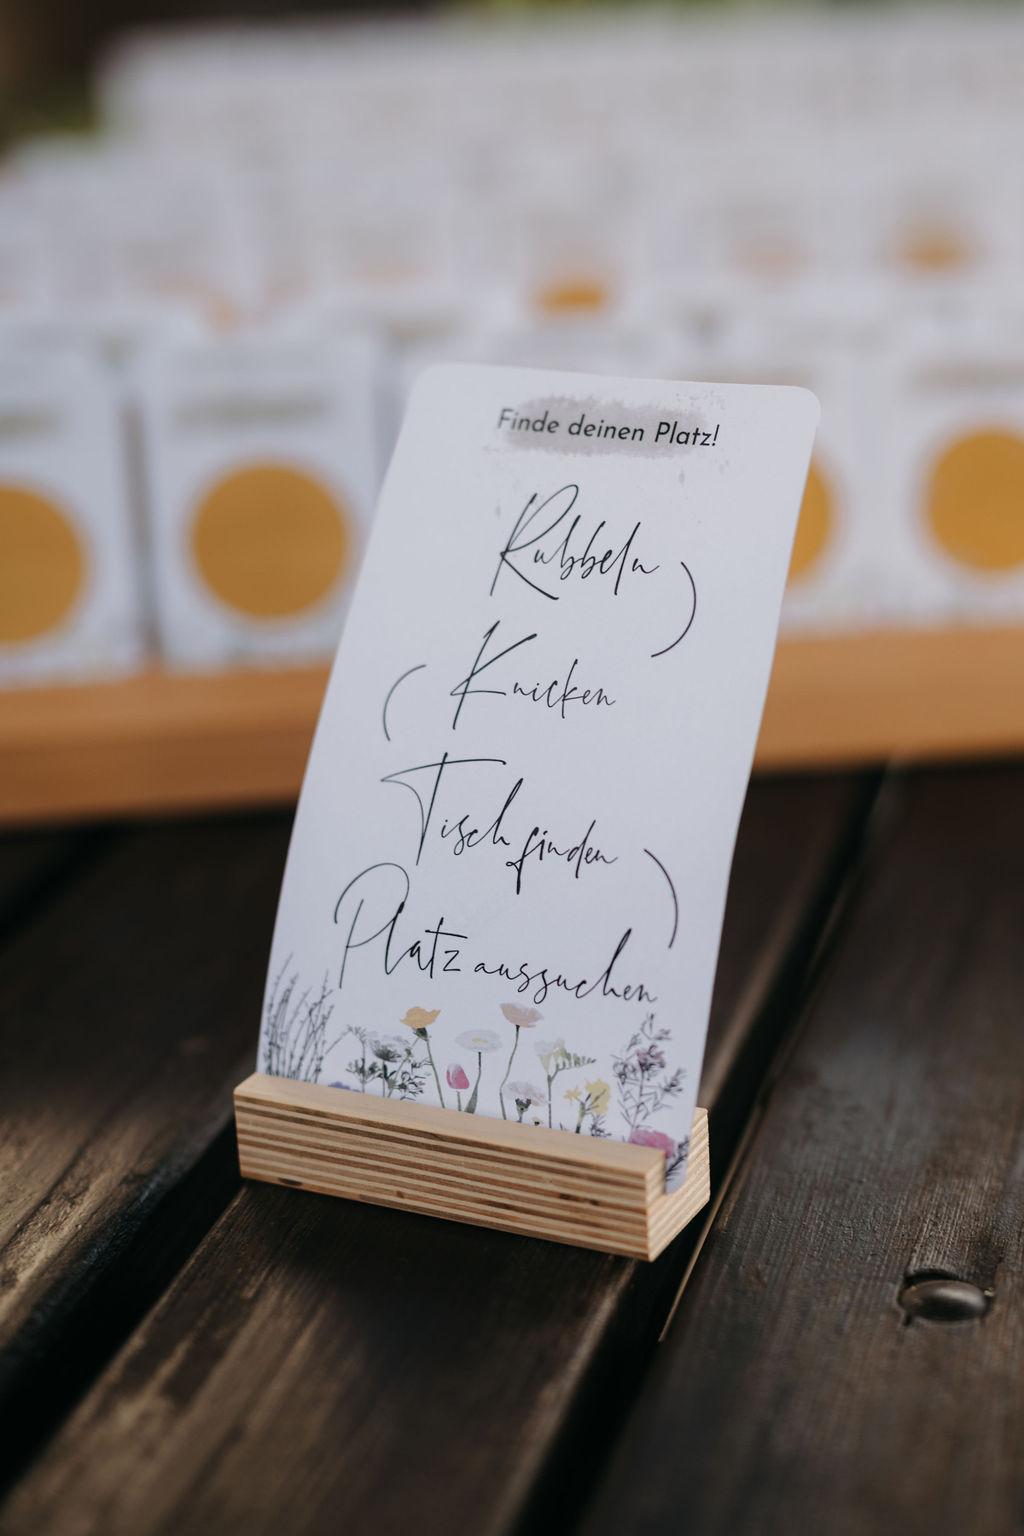 Finde deinen Platz!
Rubbeln
Knicken
Tisch finden
Platz aussuchen